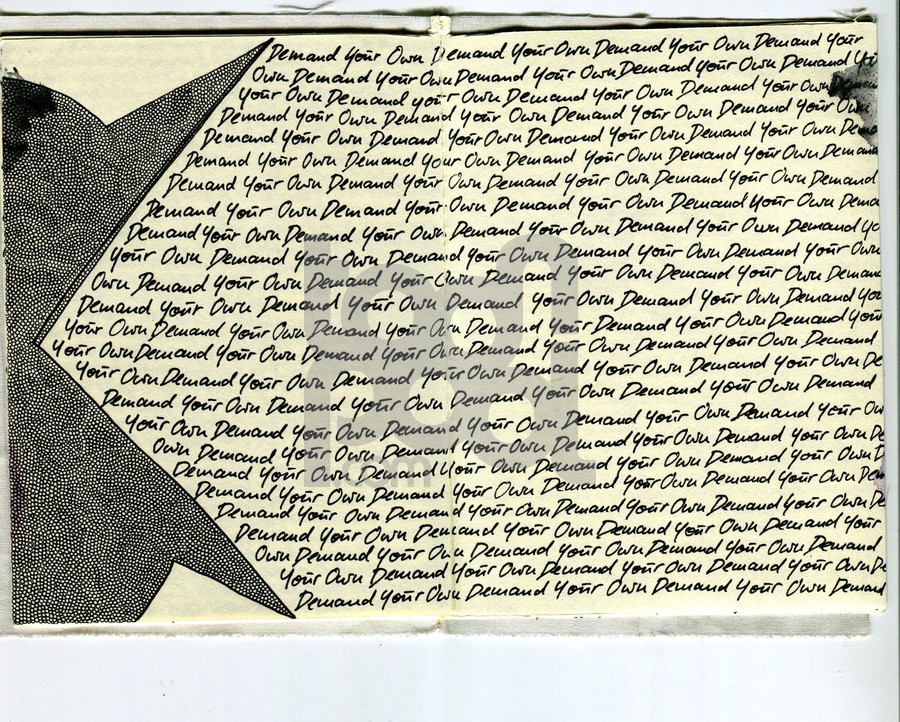 Demand Your Own Demand Your Own Demand Your Own Demand Your
Own Demand Your Own Demand Your Own Demand Your Own Demand
Your Own Demand Your Own Demand Your Own Demand Your Own
Demand Your Own Demand Your Own Demand Your Own Demand Your Own
Demand Your Own Demand Your Own Demand Your Own Demand Your Own
Demand Your Own Demand Your Own Demand Your Own Demand Your Own Demand
Demand Your Own Demand Your Own Demand Your Own Demand Your Own Demand
Demand Your Own Demand Your Own Demand Your Own Demand Your Own
Demand Your Own Demand Your Own Demand Your Own Demand Your Own Demand
Your Own Demand Your Own Demand Your Own Demand Your Own Demand Your Own
Own Demand Your Own Demand Your Own Demand Your Own Demand Your Own Demand
Demand Your Own Demand Your Own Demand Your Own Demand Your Own Demand
Your Own Demand Your Own Demand Your Own Demand Your Own Demand Your Own Demand
Your Own Demand Your Own Demand Your Own Demand Your Own Demand Your Own Demand
Your Own Demand Your Own Demand Your Own Demand Your Own Demand Your Own
Demand Your Own Demand Your Own Demand Your Own Demand Your Own Demand
Your Own Demand Your Own Demand Your Own Demand Your Own Demand Your
Own Demand Your Own Demand Your Own Demand Your Own Demand Your Own
Demand Your Own Demand Your Own Demand Your Own Demand Your Own
Demand Your Own Demand Your Own Demand Your Own Demand Your Own
Demand Your Own Demand Your Own Demand Your Own Demand Your Own
Demand Your Own Demand Your Own Demand Your Own Demand Your
Own Demand Your Own Demand Your Own Demand Your Own Demand
Your Own Demand Your Own Demand Your Own Demand Your Own
Demand Your Own Demand Your Own Demand Your Own Demand